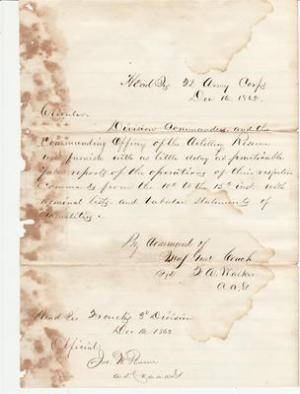 Head Qrs 2d Army Corps
Dec 16. 1862.
Circular
Division Commanders and the
Commanding Officer of the Artillery Reserve
will furnish with as little delay as practicable
reports of the operations of their respective
Commands from the 10th to the 15th inst. with
nominal lists and tabular statements of
Casualties.
By Command of
Maj Genl Couch
F. A. Walker
A. A. G
Head Qrs French's 3d Division
Dec 16 1862
Official